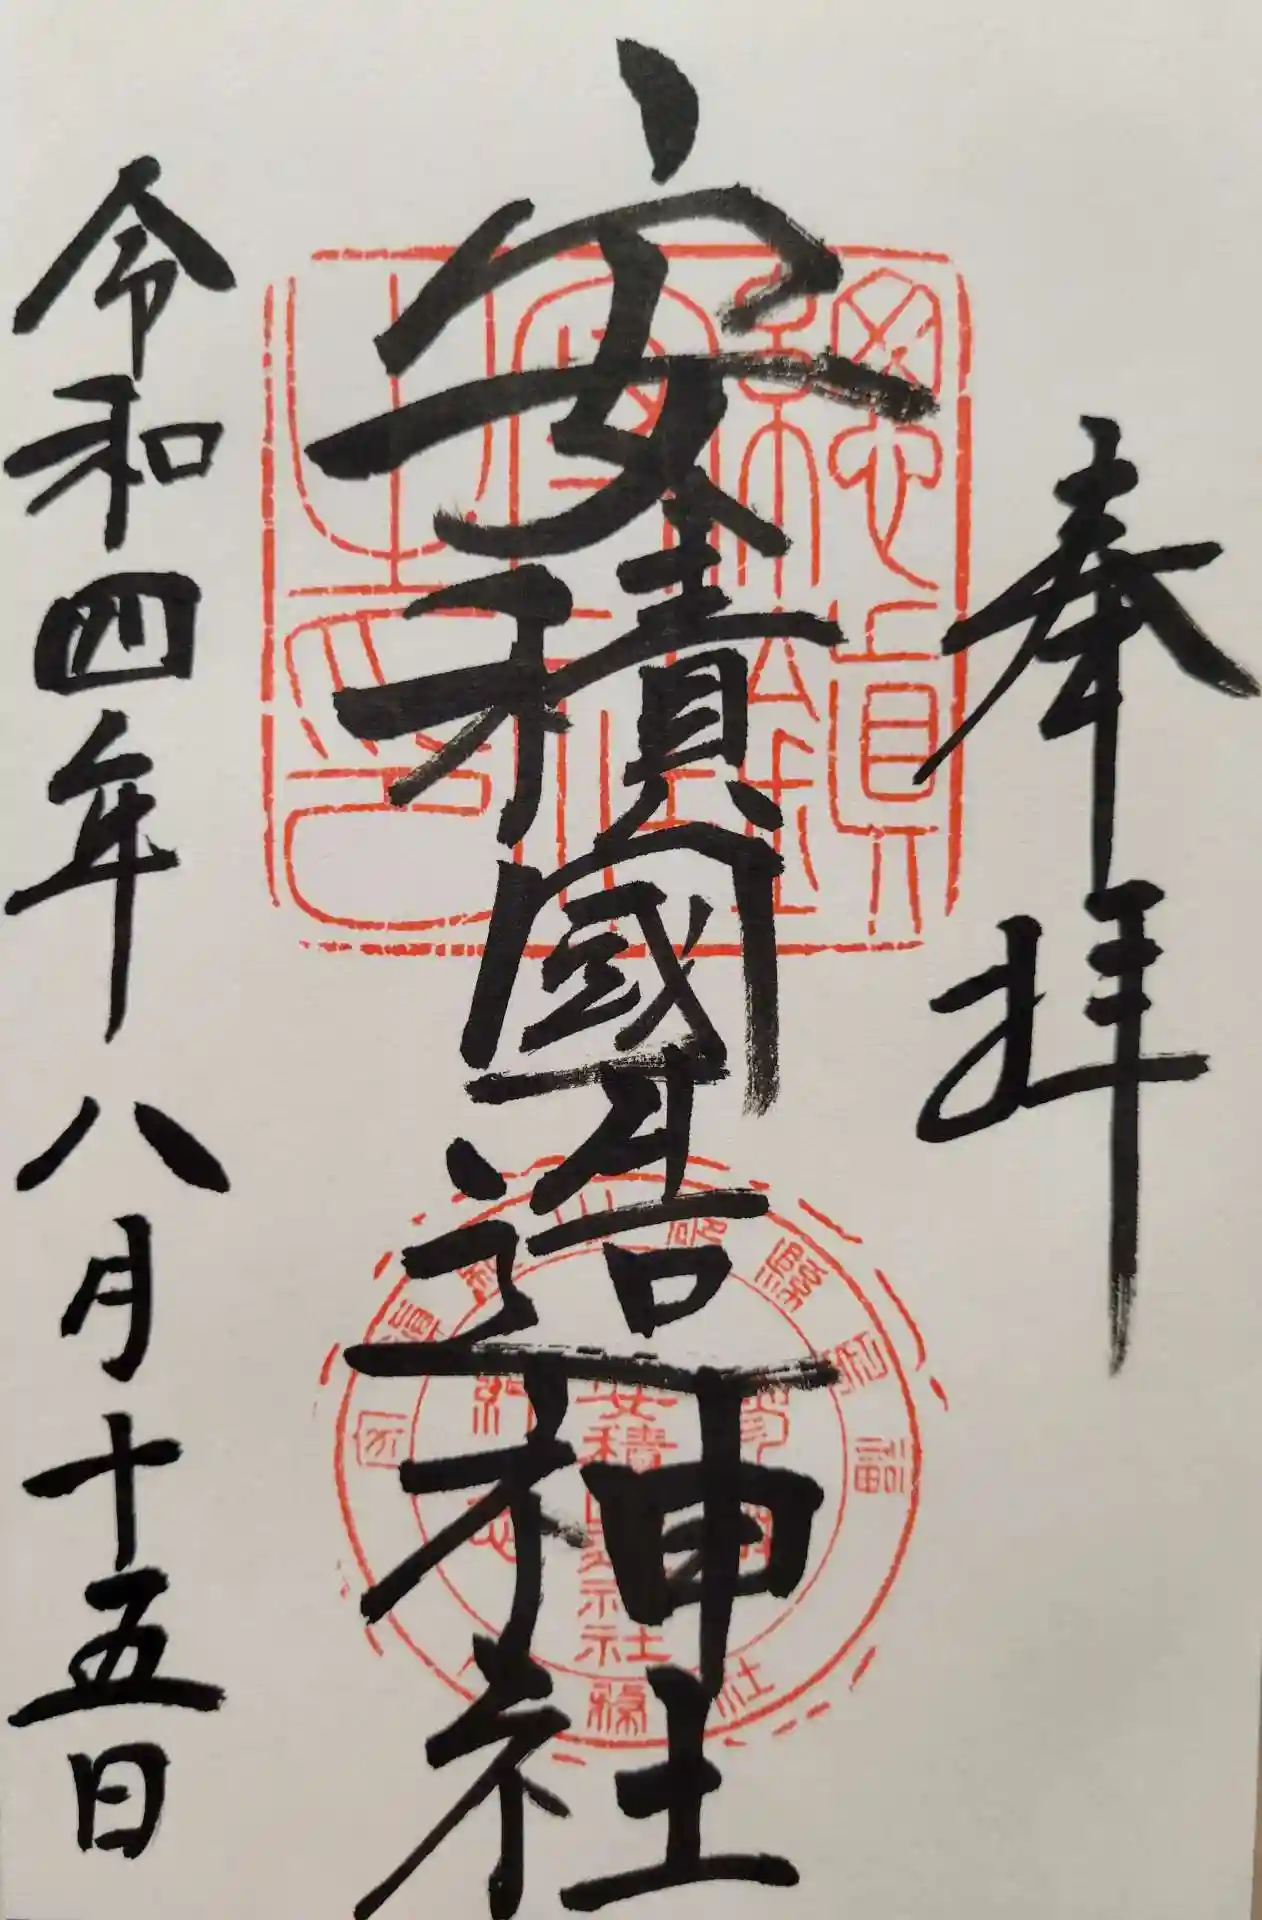 奉拜
安積國造神社
令和四年八月十五日